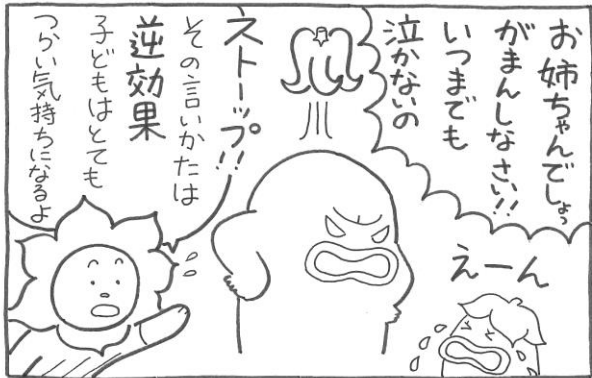 お姉ちゃんでしょっ
がまんしなさい!!
いつまでも
泣かないの
えーん
ストーップ!!
その言いかたは
逆効果
子どもはとても
つらい気持ちになるよ